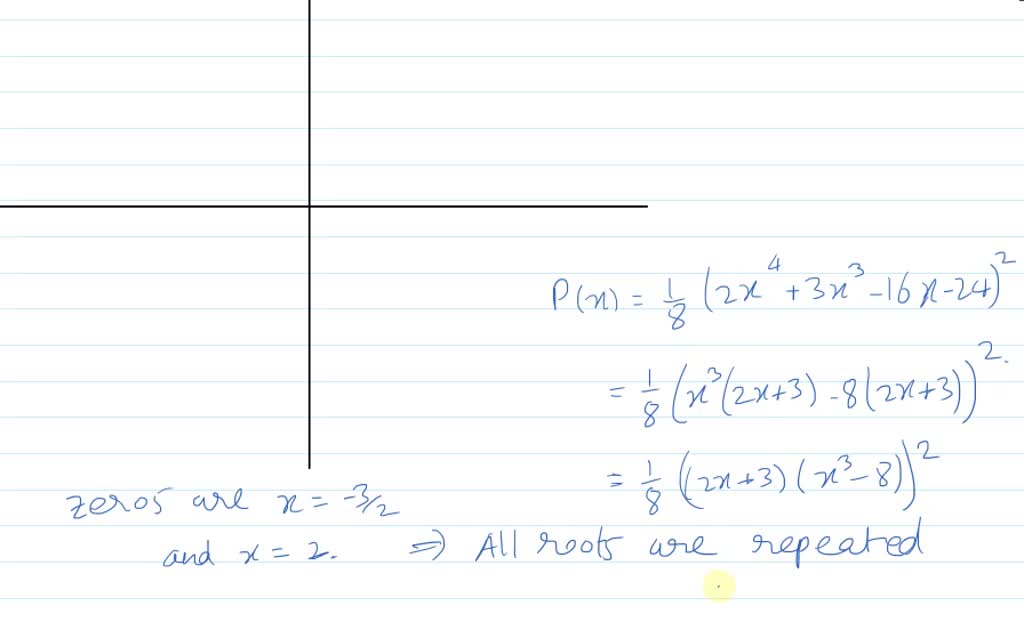 P(x) = 1/8 (2x⁴ + 3x³ - 16x - 24)²
= 1/8 (x³(2x+3) - 8(2x+3))².
= 1/8 ((2x+3)(x³ - 8))²
zeros are x = -3/2
and x = 2. ⇒ All roots are repeated